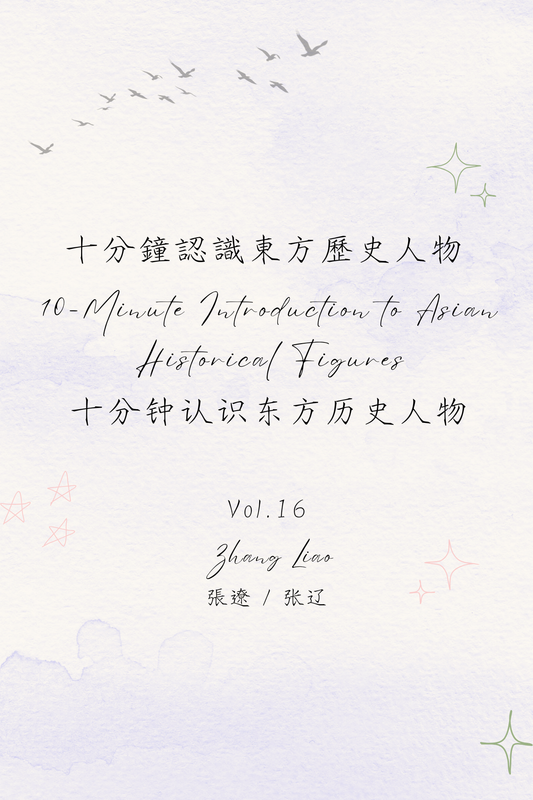 十分鐘認識東方歷史人物
10-Minute Introduction to Asian
Historical Figures
十分钟认识东方历史人物
Vol.16
Zhang Liao
張遼 / 张辽